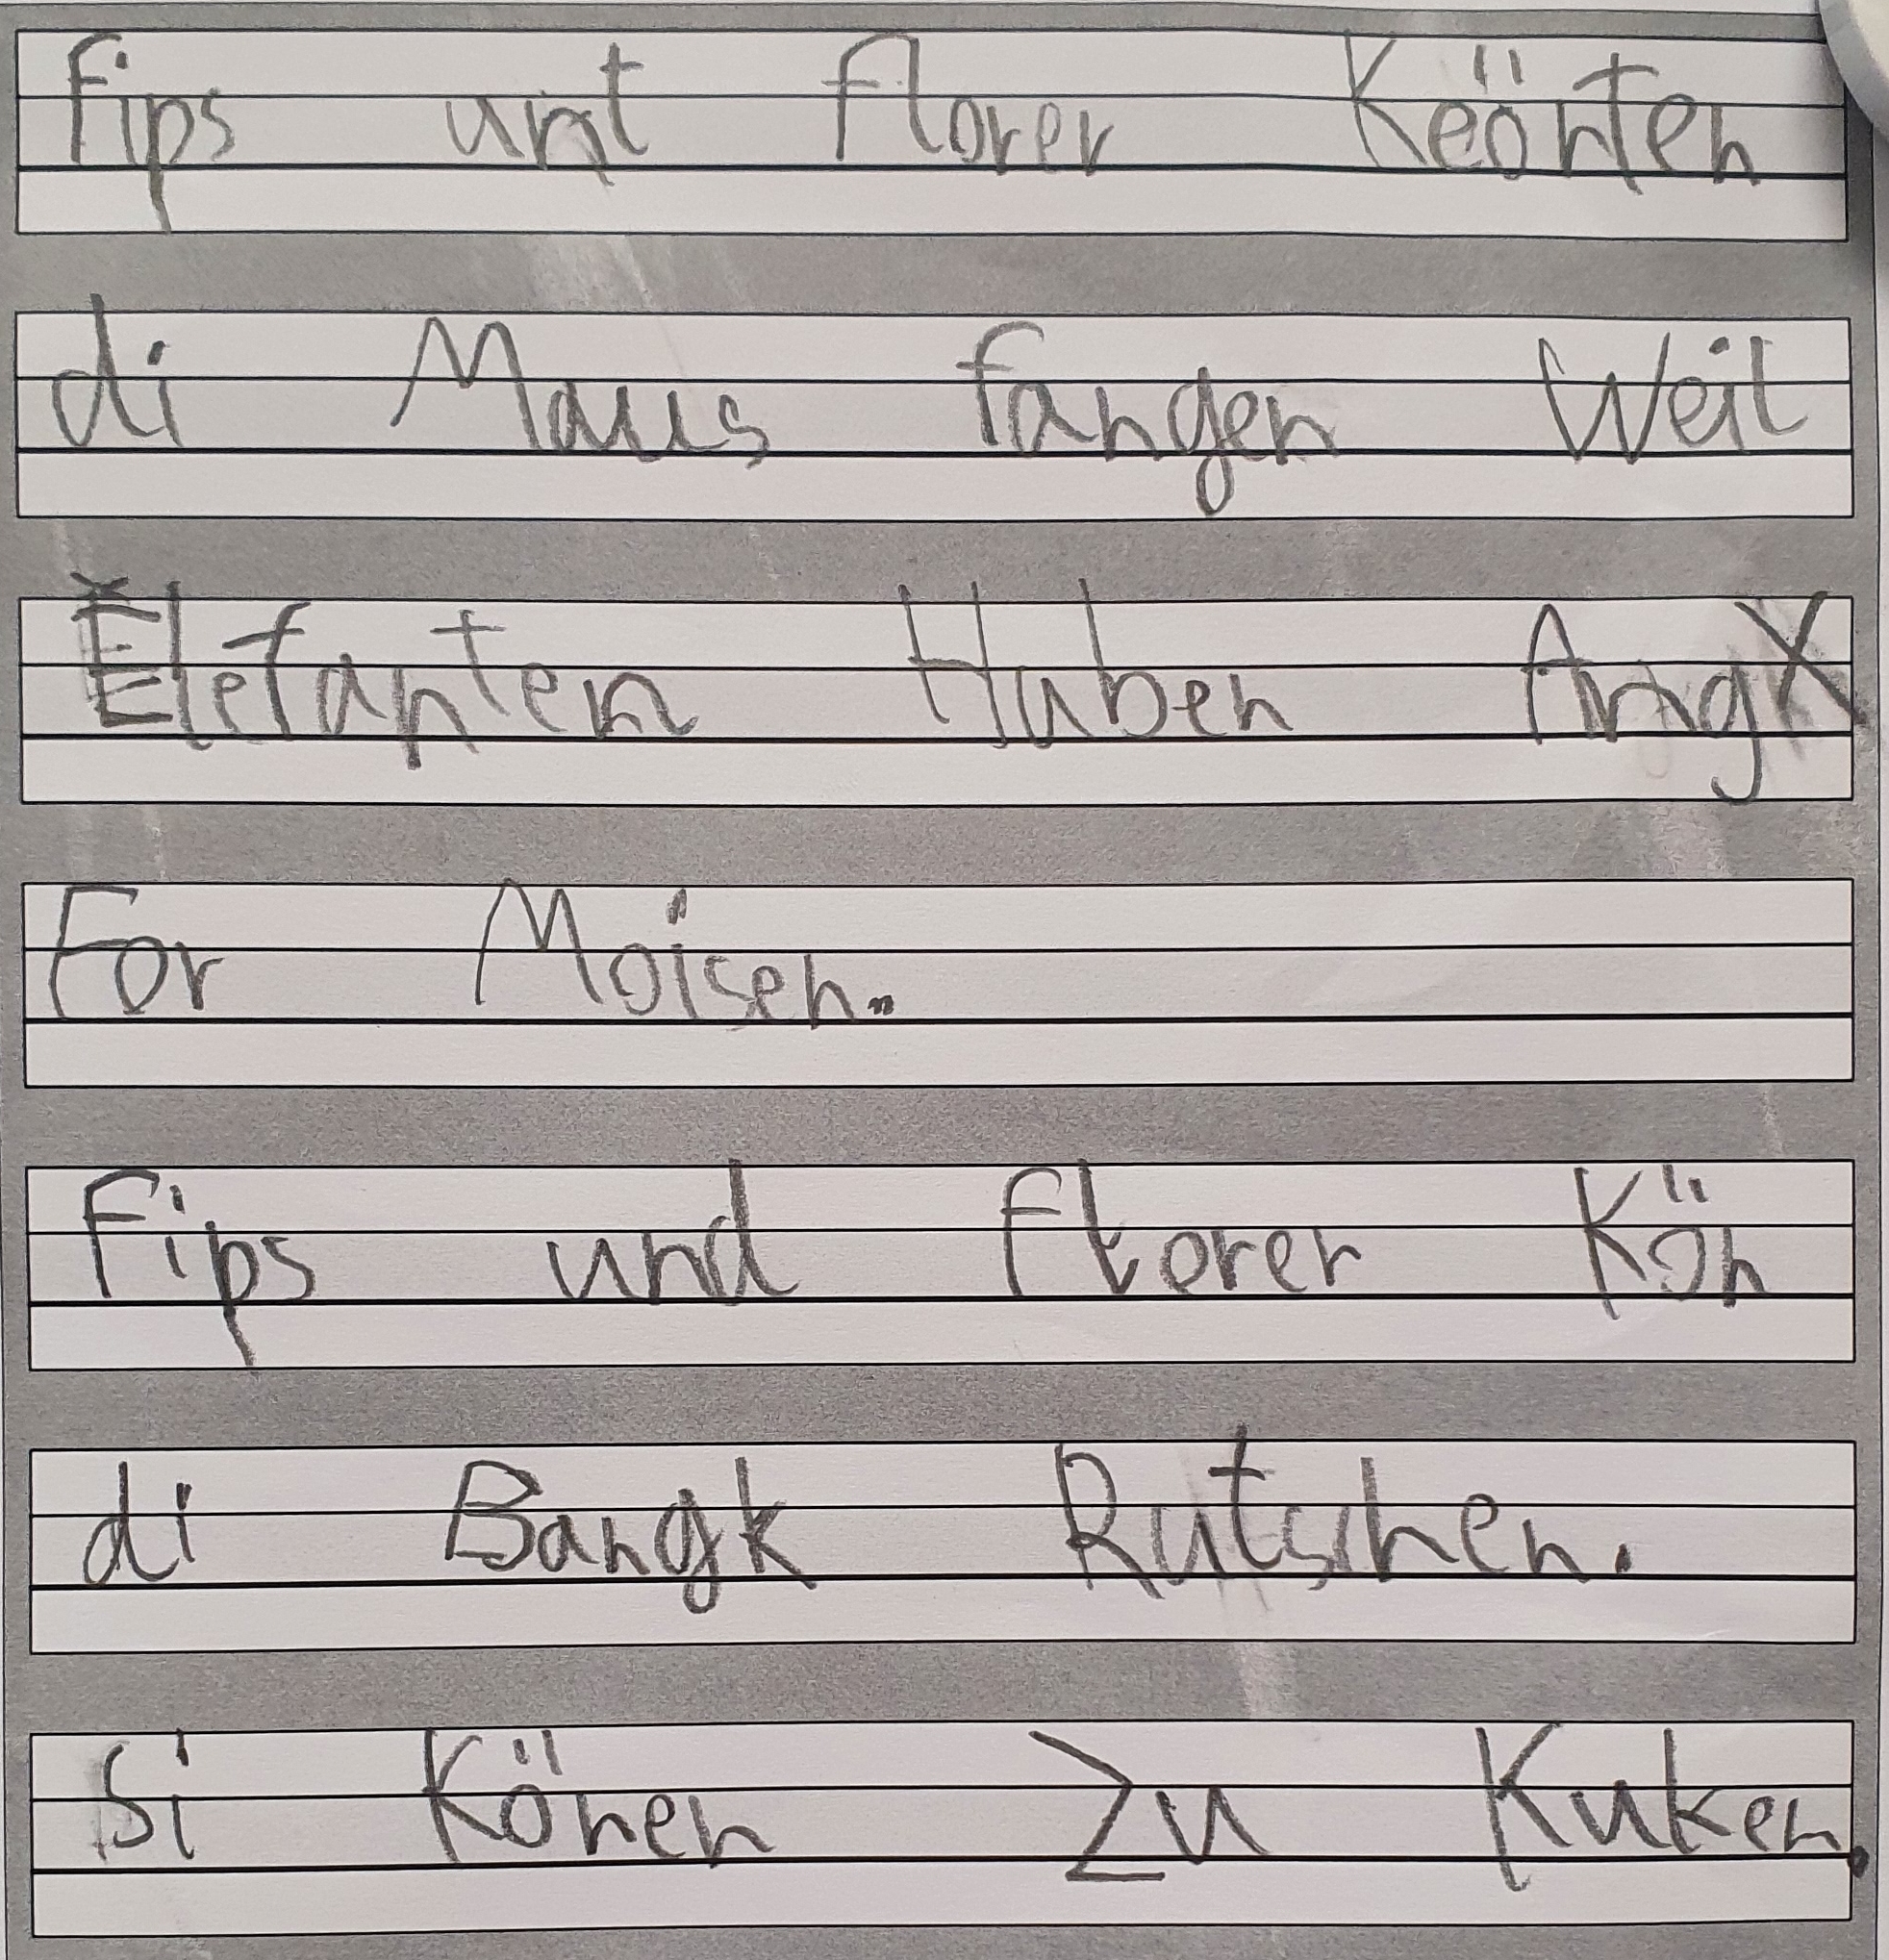 Fips unt Florer Keönten
di Maus fangen Weil
Elefanten Haben AngX
For Moisen.
Fips und Florer Kön
di Bangk Rutschen.
Si Könen Zu Kuken.